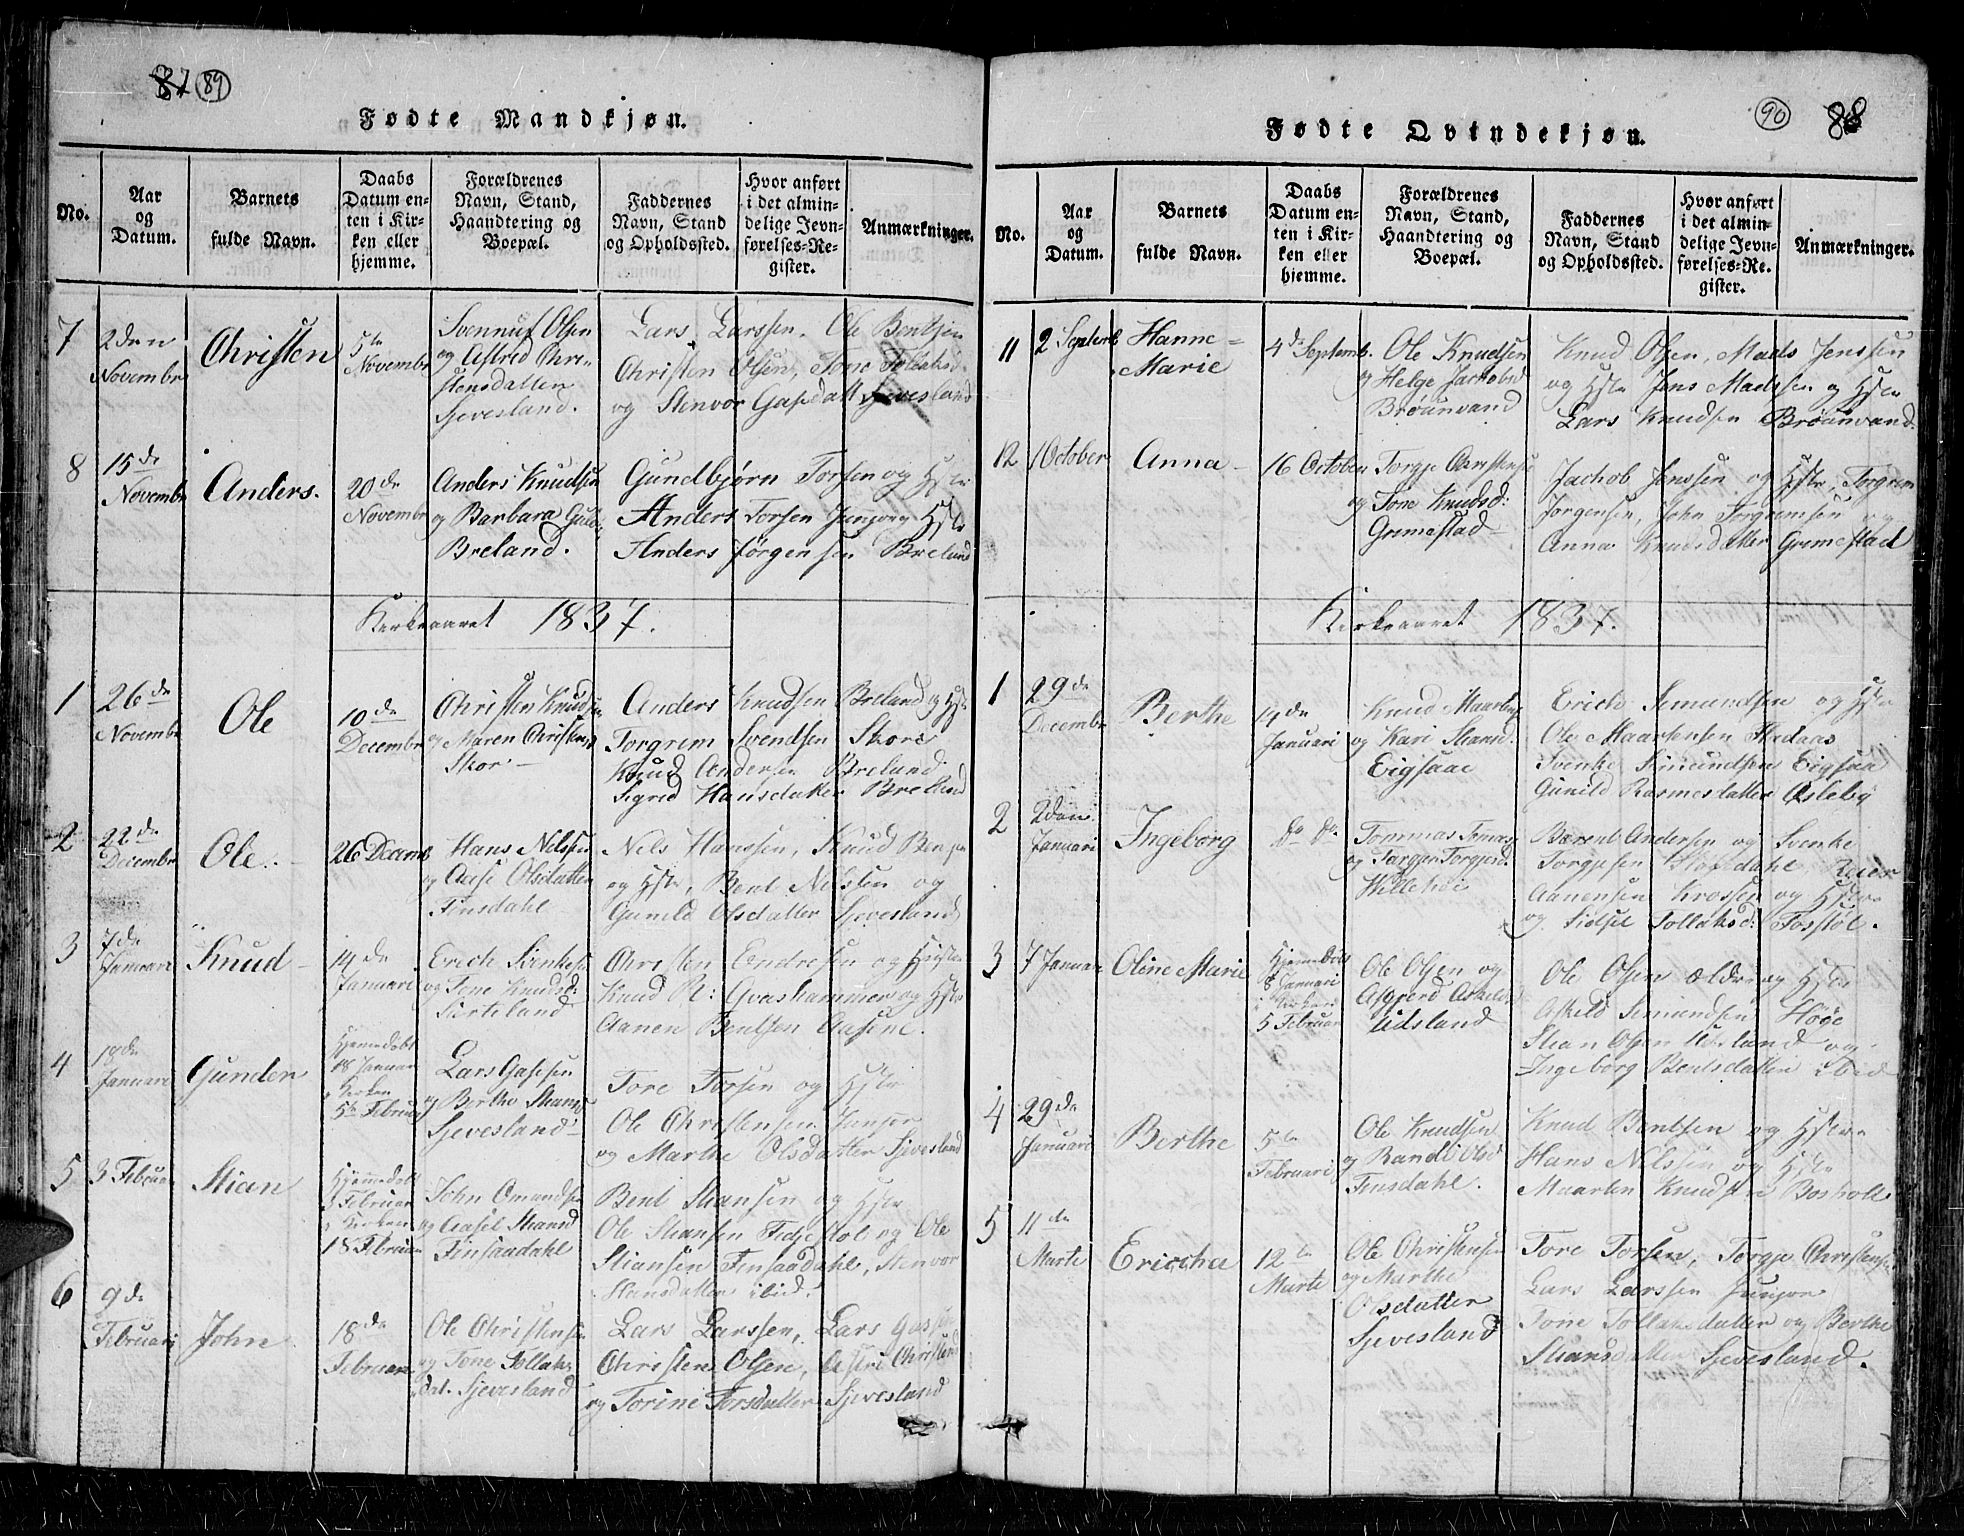 87 89
Fødte Mandkjøn.
No.
Aar
og
Datum.
Barnets
fulde Navn.
Daabs
Datum en-
ten i Kir-
ken eller
hjemme.
Forældrenes
Navn, Stand,
Haandtering og
Boepæl.
Faddernes
Navn, Stand
og Opholdssted.
Hvor anført
i det almin-
delige Jevn-
førelses-Re-
gister.
Anmærkninger.
7
2den
Novembr
Christen
5te
Novembr
Svennuf Olsen
og Astred Chri-
stensdatter
Sjevesland.
Lars Larssen, Ole Bentsen
Christen Olsen, Tone Tollaksd.
og Stenvor Gapdatt Sjevesland
8
15de
Novembr
Anders.
20de
Novembr
Anders Knudsen
og Barbara Gund.
Breland.
Gundbjørn Torsen og Hstr
Anders Torsen Junjor og Hstr
Anders Jørgensen Breland
Kirkeaaret 1837.
1
26de
Novembr
Ole
10de
Decembr
Christen Knudsen
og Maren Christens
Skor
Anders Knudsen Breland og Hstr
Torgrem Svendsen Skore
Knud Andersen Breland
Sigred Hansdatter Breland
2
22de
Decembr
Ole.
26 Decemb
Hans Nilssen
og Aase Olsdatter
Finsdahl
Nels Hanssen, Knud Benjn
og Hstr, Bent Nilssen og
Gunild Olsdatter Sjevesland
3
7de
Januari
Knud
14de
Januari
Erich Svenkesen
og Tone Knudsd:
Sirteland
Christen Endresen og Hustr
Knud R: Gvashammer og Hstr
Aanen Bentsen Aasene.
4
18de
Januari
Gunder
Hjemedøbt
18 Januar
i Kirken
5te Februar
Lars Gassen
og Berthe Stians
Sjevesland
Tore Torsen og Hstr
Ole Christensen Junjor
og Marthe Olsdatter Sjevesland
5
3 Februar
Stian
Hjemmedøbt
3 Februar
i Kirken
18 Februar
John Omundsen
og Aasel Stiansd
Finsaadahl
Bent Stiansen og Hstr
Ole Stiansen Fidjestol og Ole
Stiansen Finsaadahl, Stenvor
Stansdatter ibid.
6
9de
Februari
John
18de
Februari
Ole Christensen
og Tone Tollaks
dat. Sjevesland
Lars Larssen, Lars Gassen
Christen Olsen, Astri Christens
og Torine Torsdatter Sjevesland
90 88
Fødte Qvindekjøn.
No.
Aar
og
Datum.
Barnets
fulde Navn.
Daabs
Datum en-
ten i Kir-
ken eller
hjemme.
Forældrenes
Navn, Stand,
Haandtering og
Boepæl.
Faddernes
Navn, Stand
og Opholdssted.
Hvor anført
i det almin-
delige Jevn-
førelses-Re-
gister.
Anmærkninger.
11
2 Septemb
Hanne=
Marie
4de Septemb.
Ole Knudsen
og Helge Jachobsd
Brøunvand
Knud Olsen, Mads Jenssen
og Hstr Jens Madssen og Hstr
Lars Knudsen Brøunvand
12
1 October
Anna
16 October
Torgje Christense
og Tone Knudsd:
Grimestad
Jachob Jenssen og Hstr, Torgrem
Jørgensen, John Torgremsen og
Anna Knudsdatter Grimestad
Kirkeaaret 1837.
1
29de
Decembr
Berthe
14de
Januari
Knud Maartens
og Kari Stiansd.
Eigsaae
Erich Semundsen og Hstr
Ole Maartensen Hadaas
Svenke Simundsen Eigsaa
Gunild Rasmesdatter Asleby
2
2den
Januari
Ingeborg
do do
Tommas Tomas
og Targjer Torgjusd.
Hillehei
Bærent Andersen og Svenke
Torgjusen Stofsdahl, Reier
Aanensen Krossen og Hstr
og Sidsel Tollaksd: Fosstøl.
3
7 Januar
Oline Marie
Hjemedøbt
8 Januari
i Kirken
5 Februar
Ole Olsen og
Asgjerd Askelds
Udsland
Ole Olsen ældre og Hstr
Askeld Semundsen Høge
Stian Olsen Udsland og
Ingeborg Bentsdatter ibid
4
29de
Januari
Berthe
5te
Februari
Ole Knudsen
og Randi Olsd
Finsdahl.
Knud Bentsen og Hstr
Hans Nilssen og Hstr
Maarten Knudsen Bosholt
5
11de
Marti
Ericcha
12te
Marti
Ole Christensen
og Marthe
Olsdatter
Sjevesland
Tore Torsen, Torgje Christensen
Lars Larssen Junjor
Tone Tollaksdatter og Berthe
Stiansdatter Sjevesland.